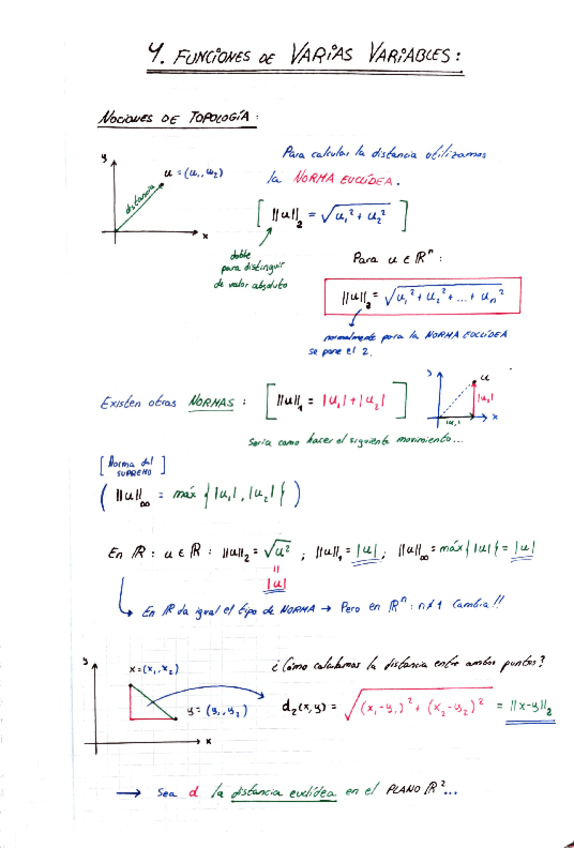 4. FUNCIONES DE VARIAS VARIABLES:
NOCIONES DE TOPOLOGÍA:
y
u = (u₁, u₂)
distancia
x
Para calcular la distancia utilizamos
la NORMA EUCLÍDEA.
[ ||u||₂ = √(u₁² + u₂²) ]
doble
para distinguir
de valor absoluto
Para u ∈ ℝⁿ:
||u||₂ = √(u₁² + u₂² + ... + uₙ²)
normalmente para la NORMA EUCLÍDEA
se pone el 2.
Existen otras NORMAS: [ ||u||₁ = |u₁| + |u₂| ]
y
u
|u₂|
|u₁|
x
Sería como hacer el siguiente movimiento...
[Norma del SUPREMO]
( ||u||∞ = máx { |u₁|, |u₂| } )
En ℝ: u ∈ ℝ: ||u||₂ = √u² ; ||u||₁ = |u| ; ||u||∞ = máx{|u|} = |u|
=
|u|
En ℝ da igual el tipo de NORMA → Pero en ℝⁿ: n≠1 Cambia!!
y
x = (x₁, x₂)
y = (y₁, y₂)
x
¿Cómo calculamos la distancia entre ambos puntos?
d₂(x,y) = √((x₁-y₁)² + (x₂-y₂)²) = ||x-y||₂
→ Sea d la distancia euclídea en el PLANO ℝ²...